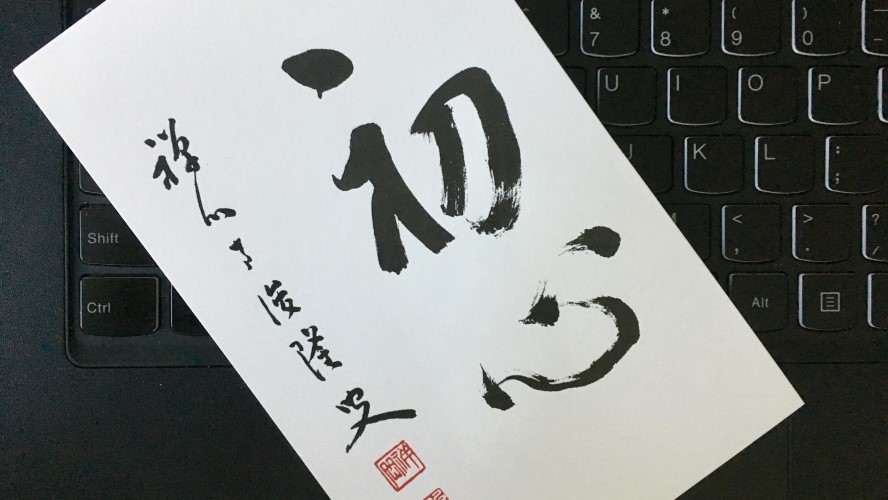 初心
禅心寺俊隆叟
& * ( )
7 8 9 0
U I O P
K L : ;
Shift M < , > .
Ctrl Alt